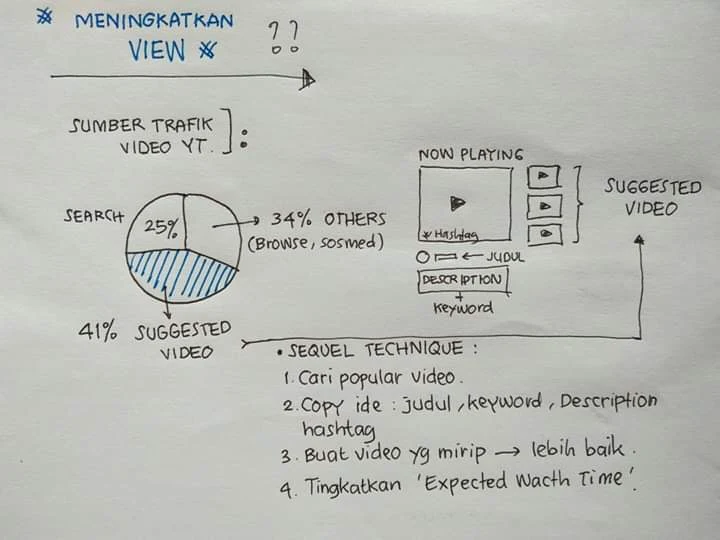 MENINGKATKAN
VIEW ??
SUMBER TRAFIK
VIDEO YT. :
SEARCH
25%
34% OTHERS
(Browse, sosmed)
41% SUGGESTED
VIDEO
NOW PLAYING
* Hashtag
JUDUL
DESCRIPTION
+
Keyword
SUGGESTED
VIDEO
• SEQUEL TECHNIQUE :
1. Cari popular video.
2. Copy ide : judul, keyword, Description
hashtag
3. Buat video yg mirip → lebih baik.
4. Tingkatkan 'Expected Wacth Time'.